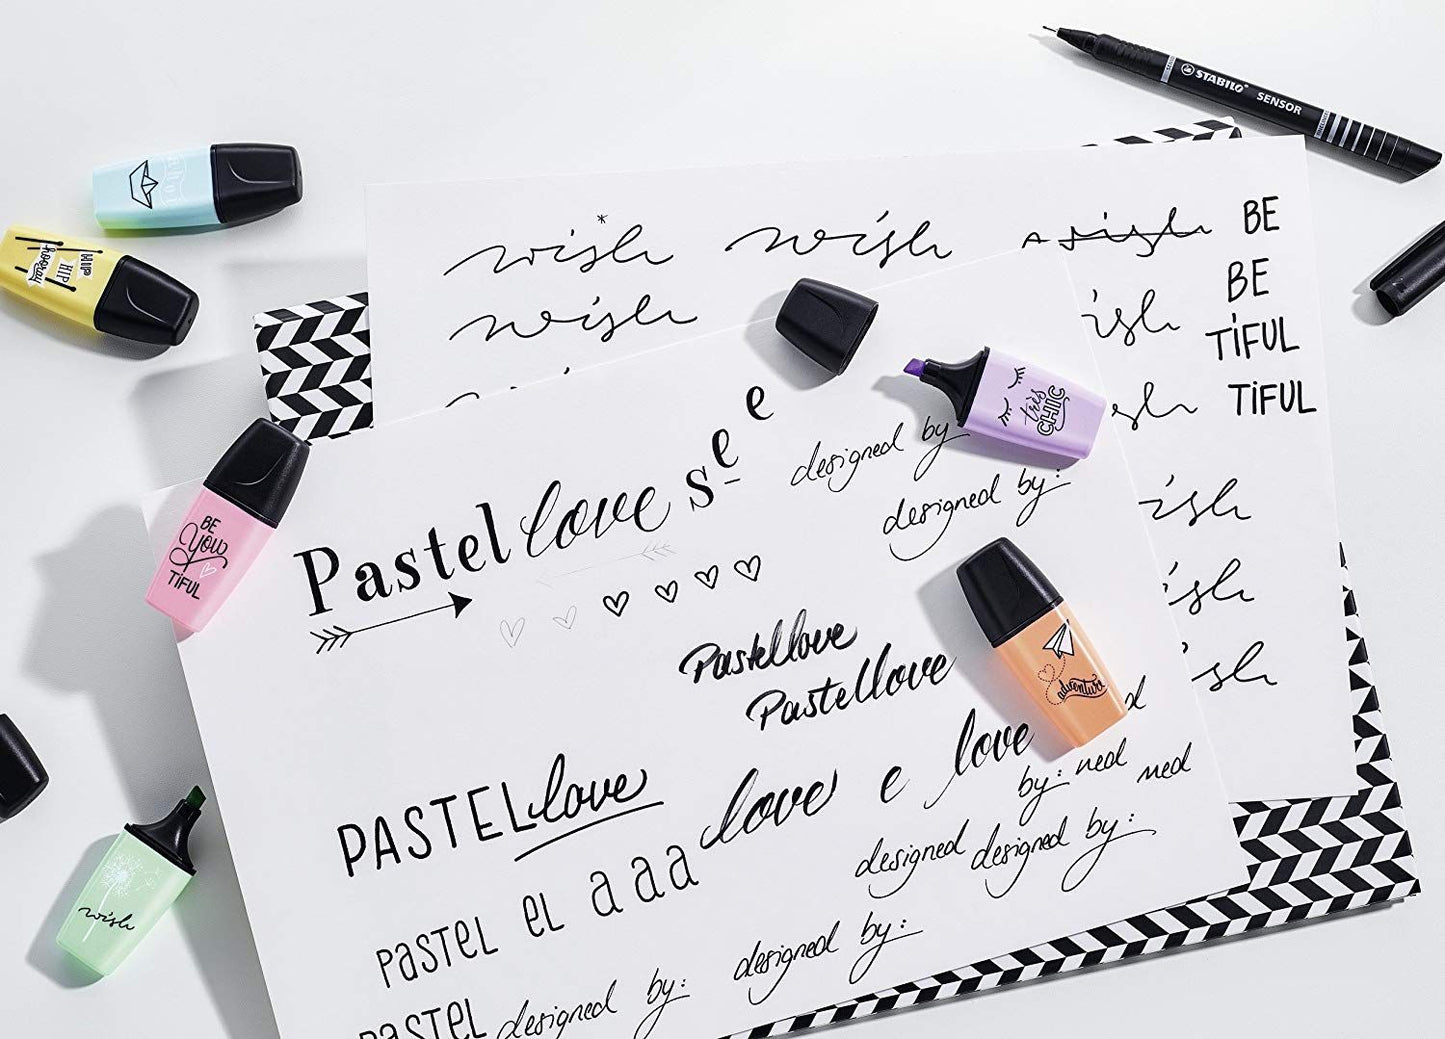 STABILO® SENSOR
ahoi
HIP
HIP
hooray
wish* wish wish BE
wish wish BE
TiFUL
wish TiFUL
wish
wish
wish
très
CHIC
designed by
designed by:
Pastel love see
BE
YOU
TiFUL
Pastellove
Pastellove
adventure
PASTELlove
love e love
by: ned ned
PASTEL EL a a a
designed designed by:
wish
designed by:
PASTEL designed by: